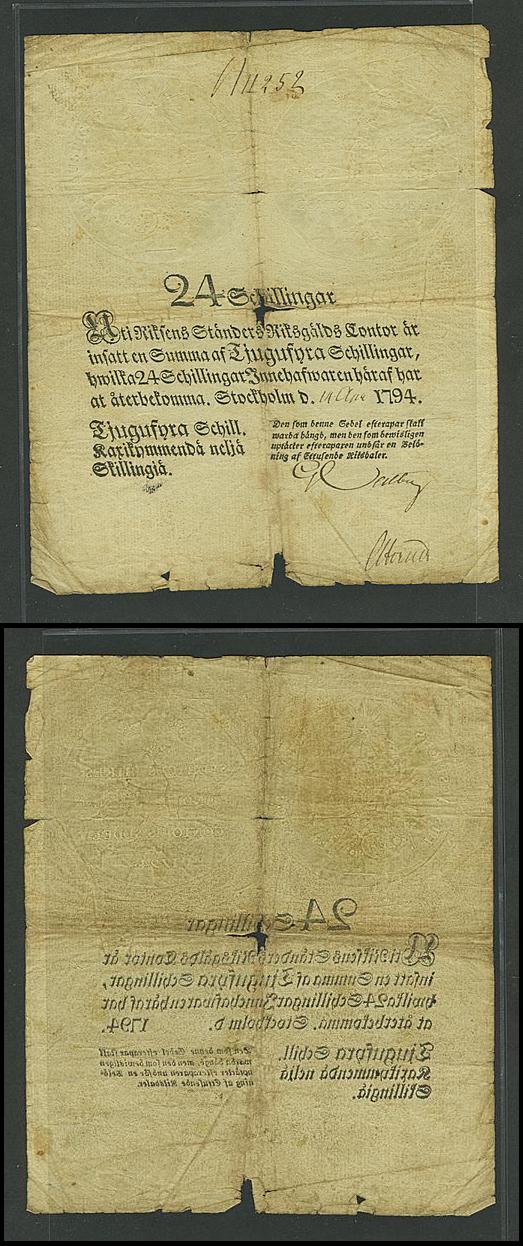 11252
24 Schillingar
Uti Riksens Ständers Riksgälds Contor är
insatt en Summa af Tjugufyra Schillingar,
hwilka 24 Schillingar Innehafwaren häraf har
at återbekomma. Stockholm d. 1794.
Tjugufyra Schill.
Kaxikymmendä neljä
Skillingiä.
Den som denne Sedel efterapar skall
warda hängd, men den som bewisligen
uptäcker efteraparen undfår en Belö-
ning af Ettusende Riksdaler.
24 Schillingar
Uti Riksens Ständers Riksgälds Contor är
insatt en Summa af Tjugufyra Schillingar,
hwilka 24 Schillingar Innehafwaren häraf har
at återbekomma. Stockholm d. 1794.
Tjugufyra Schill.
Kaxikymmendä neljä
Skillingiä.
Den som denne Sedel efterapar skall
warda hängd, men den som bewisligen
uptäcker efteraparen undfår en Belö-
ning af Ettusende Riksdaler.